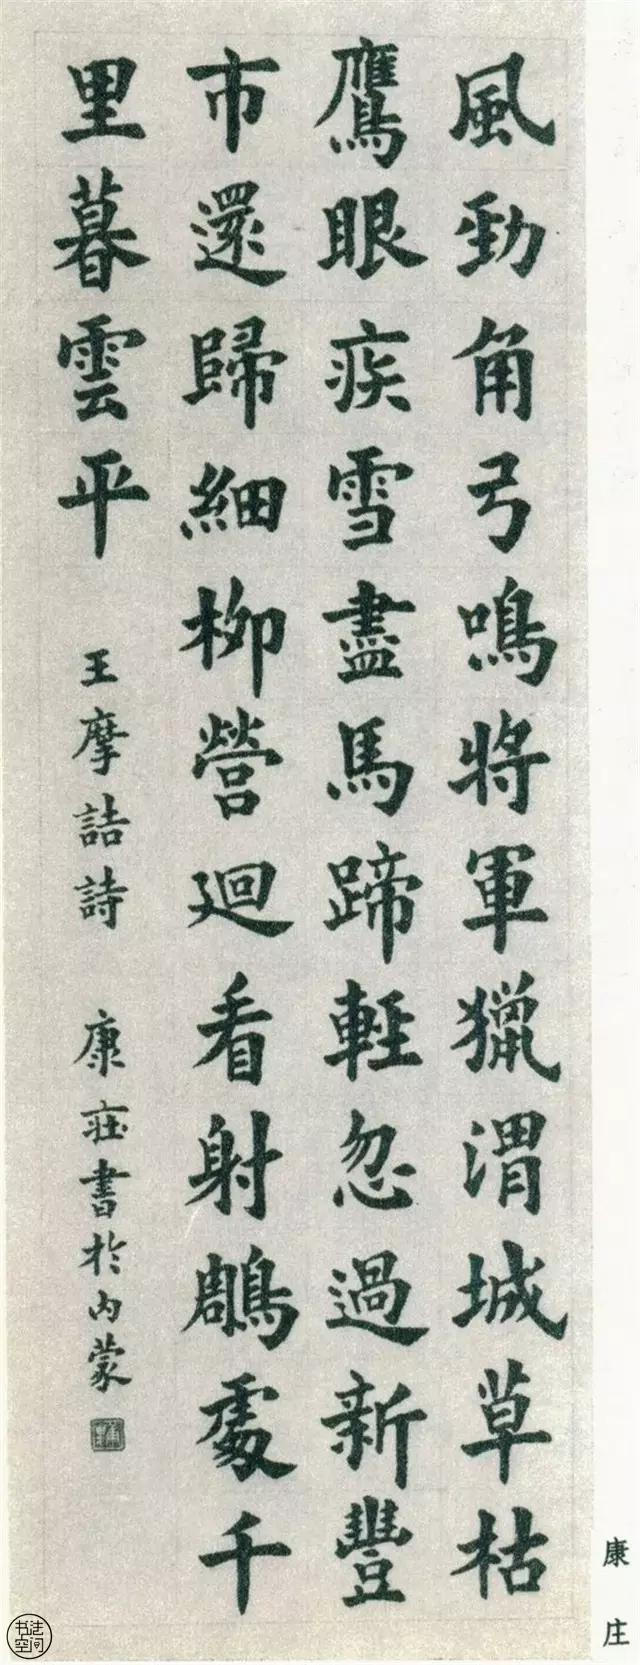 風勁角弓鳴將軍獵渭城草枯
鷹眼疾雪盡馬蹄輕忽過新豐
市還歸細柳營迴看射鵰處千
里暮雲平
王摩詰詩 康莊書於內蒙
康庄
书法空间